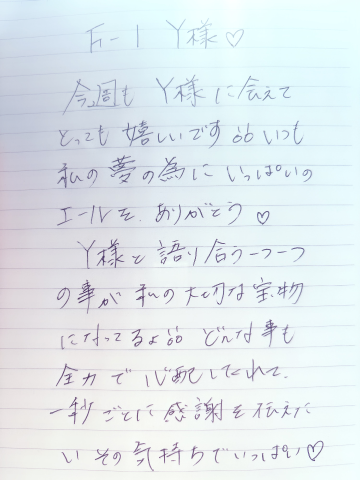 F-1 Y様♡
今週も Y様に会えて
とっても 嬉しいです いつも
私の夢の為に いっぱいの
エールを ありがとう♡
Y様と語り合う一つ一つ
の事が 私の大切な宝物
になってるよ どんな事も
全力で 心配してくれて、
一秒ごとに 感謝を伝えた
い その気持ちでいっぱい♡